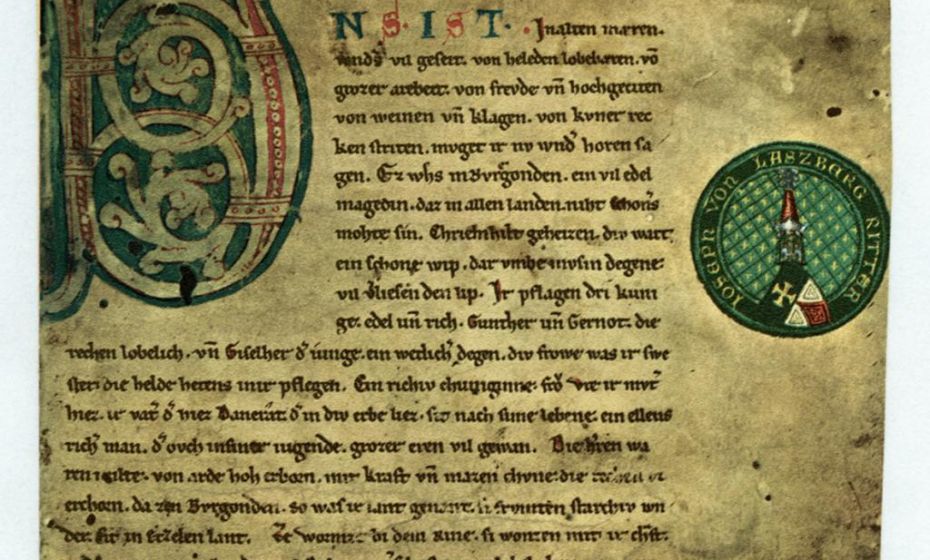 NS·IST· Jn alten mæren.
wnds vil geseit. von heleden lobebæren. võ
grozer arebeit. von frevde vñ hochgeciten
von weinen vñ klagen. von kvner rec
ken striten. mvget ir nv wnds horen sa
gen. Ez whs in Bvrgonden. ein vil edel
magedin. daz in allen landen. niht schoners
mohte sin. Chriemhilt geheizen. div wart
ein schone wip. dar vmbe mvsin degene
vil verliesen den lip. Ir pflagen dri kuni
ge. edel uñ rich. Gunther uñ Gernot. die
rechen lobelich. vñ Giselher der iunge. ein wetlich degen. div frowe was ir swe
ster. die helde hetens inir pflegen. Ein richiv chuniginne. ir mvter
hiez. ir vater der hiez Dancrat. der in div erbe liez. sit nach sime lebene. ein ellens
rich man. der ovch in siner iugende. grozer eren vil gewan. Die herren wa
ren milte. von arde hoh erborn. mit kraft vñ mazen chvne. die
erchorn. da zen Bvrgonden. so was ir lant genant. si frvmten starchiv wn
der. sit in Etzelen lant. Ze Wormze bi dem Rine. si wonten mit ir chraft.
IOSEPH VON LASZBURG RITTER